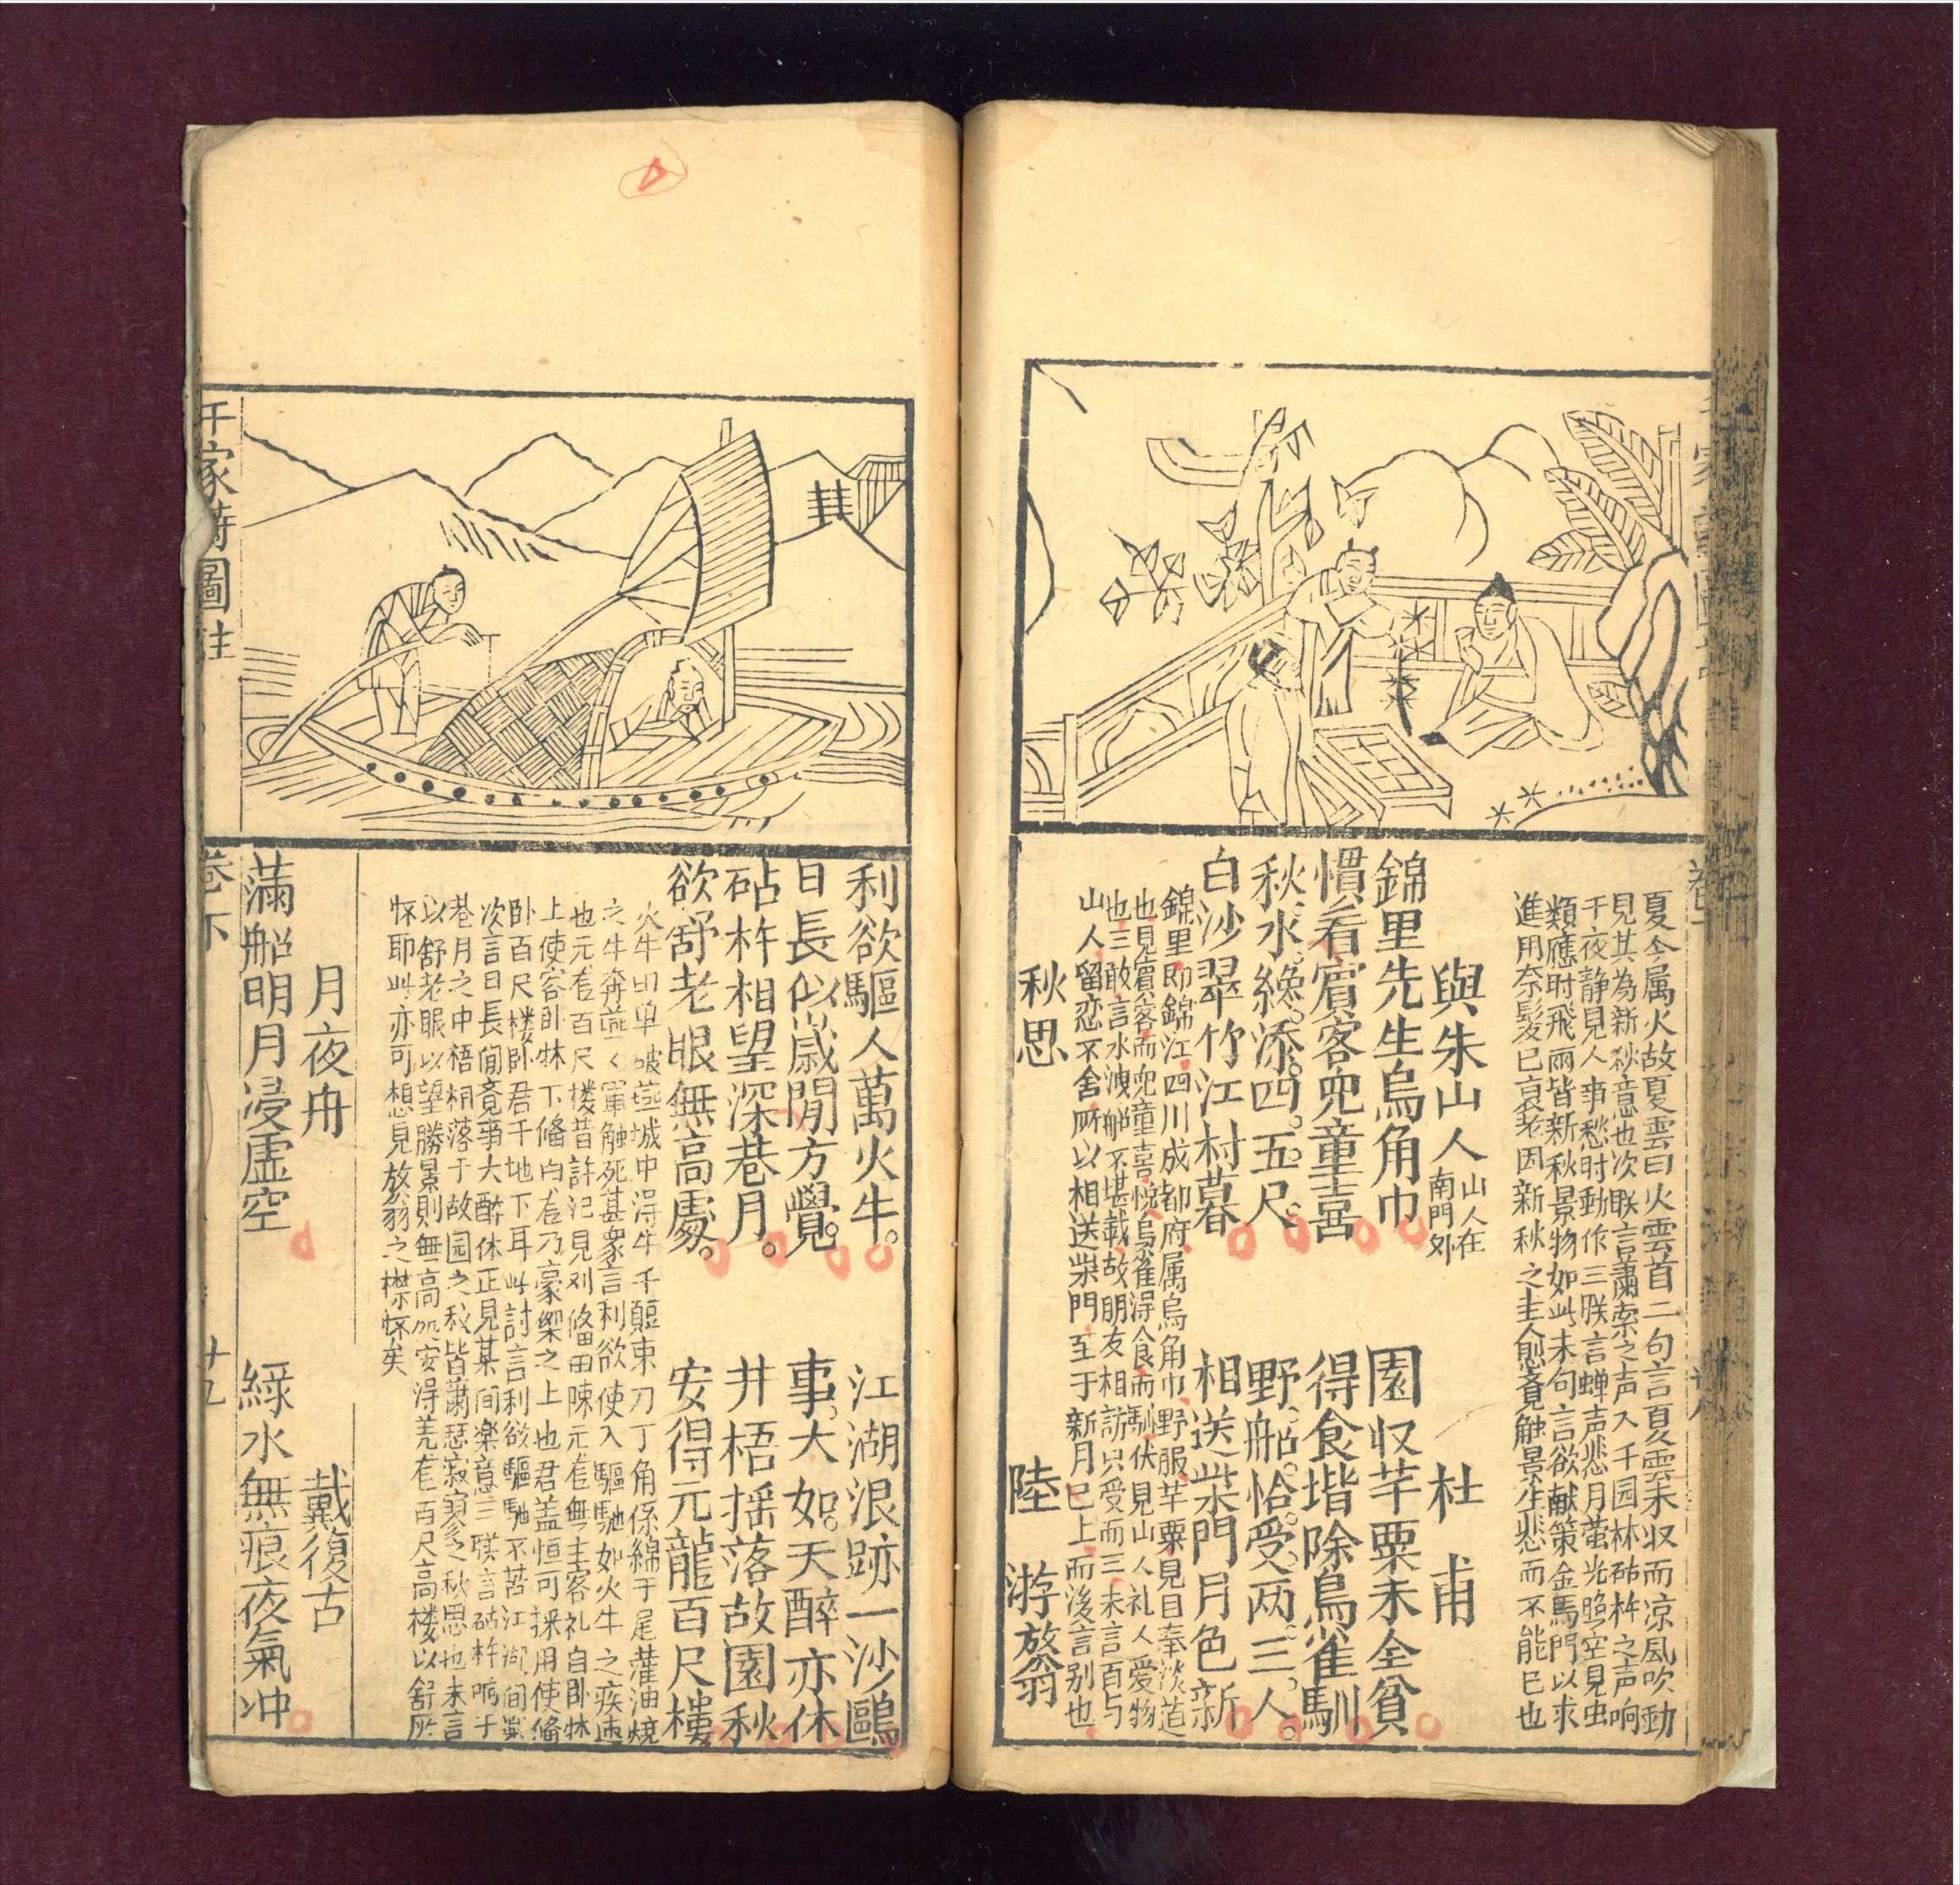 夏令属火故夏雲曰火雲首二句言夏雲未収而凉風吹動
見其為新秋意也次联言蕭索之声入千园林砧杵之声响
于夜静見人事愁时動作三联言蝉声悲月萤光照空見虫
類應时飛雨皆新秋景物如此末句言欲献策金馬門以求
進用奈髪已衰老因新秋之主人愈覚觸景生悲而不能已也
與朱山人 山人在南門外 杜甫
錦里先生烏角巾 園収芋粟未全貧
慣看賓客兜童喜 得食堦除鳥雀馴
秋水纔添四五尺 野船恰受两三人
白沙翠竹江村暮 相送柴門月色新
錦里即錦江四川成都府属烏角巾野服芋粟見目奉淡薄
也見賓客而兜童喜悅鳥雀得食而馴伏見山人礼人愛物
也三敢言水洩船不堪載故朋友相訪只受而三末言百与
山人留恋不舍所以相送柴門至于新月已上而後言别也
秋思 陸游 放翁
千家詩圖註
卷下
十九
利欲驅人萬火牛。 江湖浪跡一沙鷗
日長似歲閒方覺。 事大如天醉亦休
砧杵相望深巷月。 井梧摇落故園秋
欲舒老眼無高處。 安得元龍百尺樓
火牛田单破燕城中得牛千頭束刀丁角係綿于尾灌油燒
之牛奔燕燕軍触死甚衆言利欲使入驅馳如火牛之疾速
也元龍百尺楼昔許汜見刘俻田陳元龍無主客礼自卧牀
上使客卧牀下俻曰君乃豪傑之上也君盖恒可採用使俻
卧百尺楼卧君于地下耳此詩言利欲驅馳不苦江湖间
次言日長閒竟事大醉休正見某间楽意三联言砧杵响于
巷月之中梧桐落于故园之秋皆蕭瑟寂寥之秋思也末言
以舒老眼以望勝景則無高処安得元龍百尺高楼以舒所
怀耶此亦可想見放翁之襟怀矣
月夜舟 戴復古
滿船明月浸虛空 綠水無痕夜氣冲